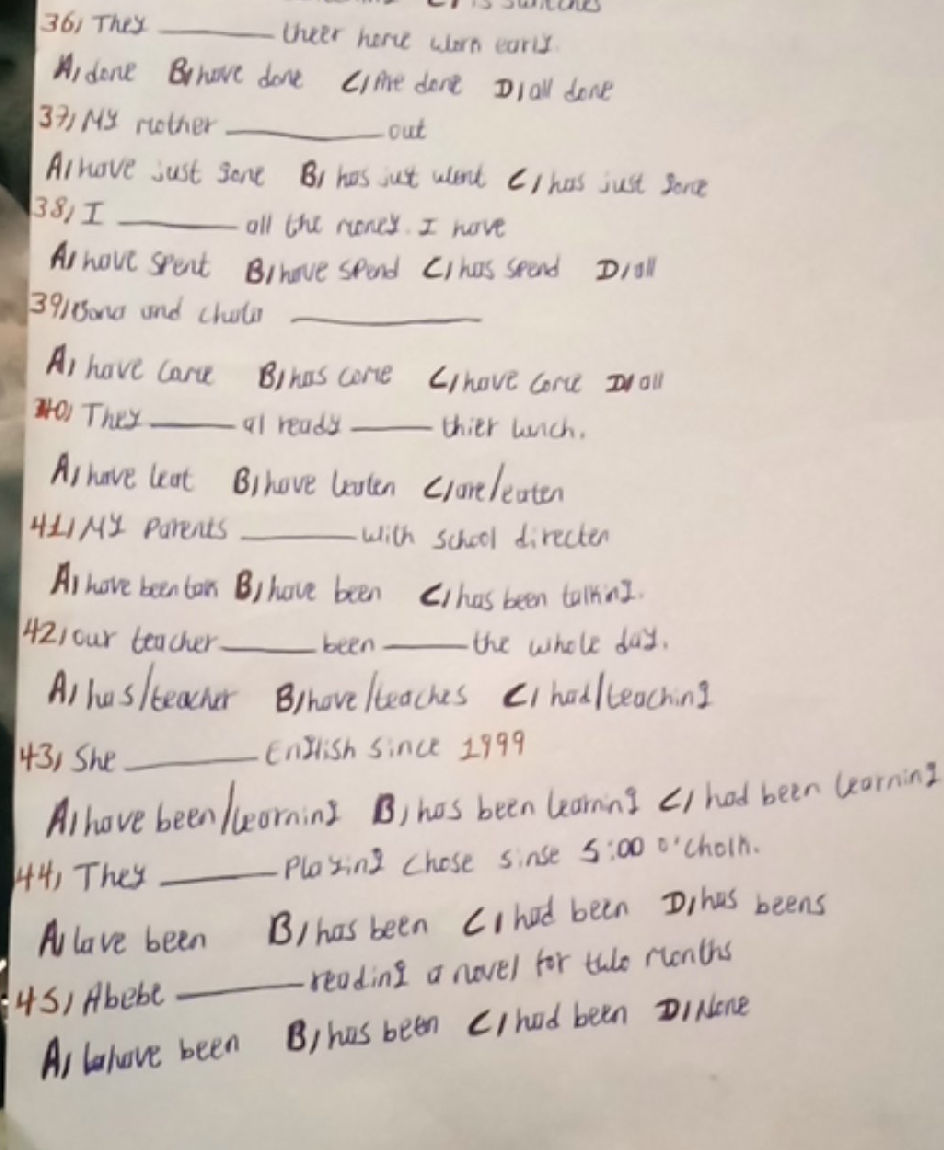 is
36) They ______ theer home worn early.
A) done B) have done C) the done D) all done
37) My mother ______ out
A) have just gone B) has just went C) has just gone
38) I ______ all the money. I have
A) have spent B) have spend C) has spend D) all
39) and ______
A) have came B) has come C) have come D) all
40) They ______ al ready ______ thier lunch.
A) have / eat B) have / eaten C) are / eaten
41) My Parents ______ with school directer
A) have been B) have been C) has been talking.
42) our teacher ______ been ______ the whole day.
A) has / teacher B) have / teaches C) had / teaching
43) She ______ English since 1999
A) have been / learning B) has been learning C) had been learning
44) They ______ Playing chose sinse 5:00 o'cholk.
A) lave been B) has been C) had been D) has beens
45) Abebe ______ reading a novel for two months
A) have been B) has been C) had been D) None